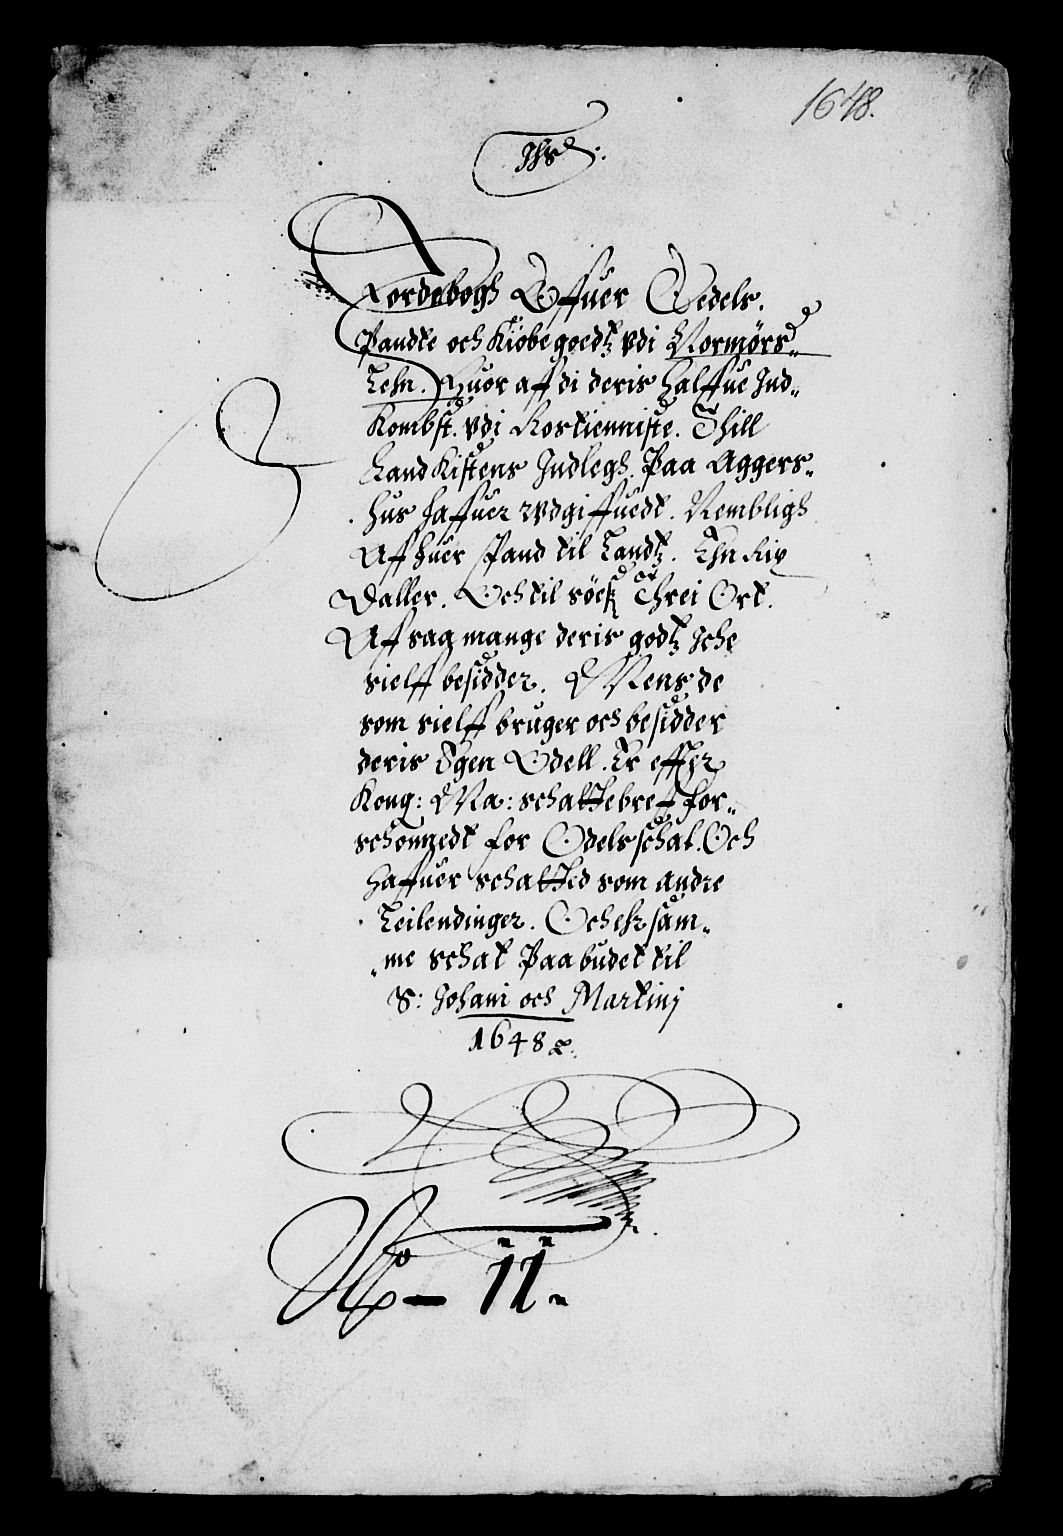 1648.
Ihs
Jordebogh Offuer Oedels.
Pandte och Kiöbegoedtz vdi Normörs
Lehn. Huor aff di deris halffue Ind„
Kombst. vdi Rostienniste. Thill
Land Kistens Indlegh. Paa Aggers„
hus haffuer vdgiffuedt. Nembligh
Aff huer spand til Landtz. Ehn Rix
Daller. Och til söes Threi Ort.
Aff saa mange deris godtz Iche
sielff besidder. Mens de
som sielff bruger och besidder
deris Egen Odell. Er effter
Kong: Ma: schattebreff for„
schonnedt for Odelsschat. Och
haffuer schatted som andre
Leilendinger. Och er sam„
„me schat Paabudet til
S: Johani och Martinj
1648 &.
No – 11.